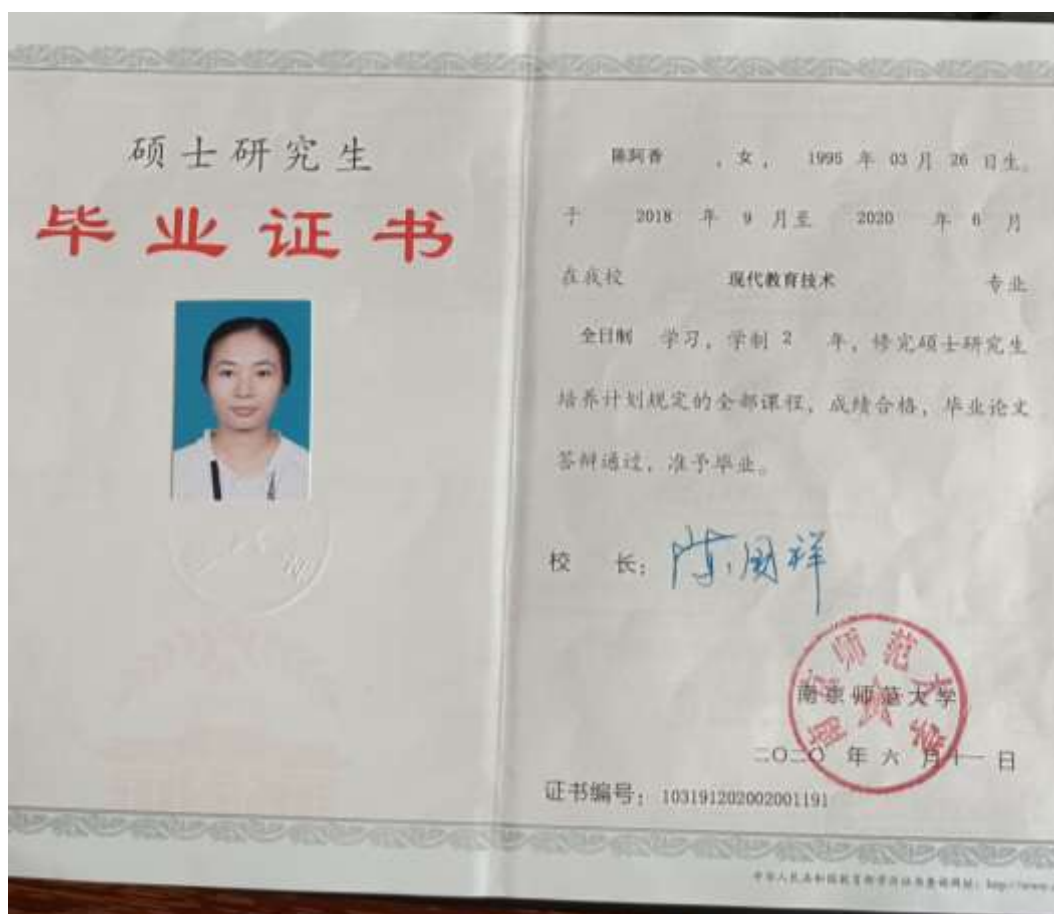 硕士研究生
毕业证书
陈阿香 , 女, 1995 年 03 月 26 日生。
于 2018 年 9 月至 2020 年 6 月
在我校 现代教育技术 专业
全日制 学习, 学制 2 年, 修完硕士研究生
培养计划规定的全部课程, 成绩合格, 毕业论文
答辩通过, 准予毕业。
校 长: 陈国祥
南京师范大学
南京师范大学
二〇二〇 年 六 月十一 日
证书编号: 103191202002001191
中华人民共和国教育部学历证书查询网址: http://www.